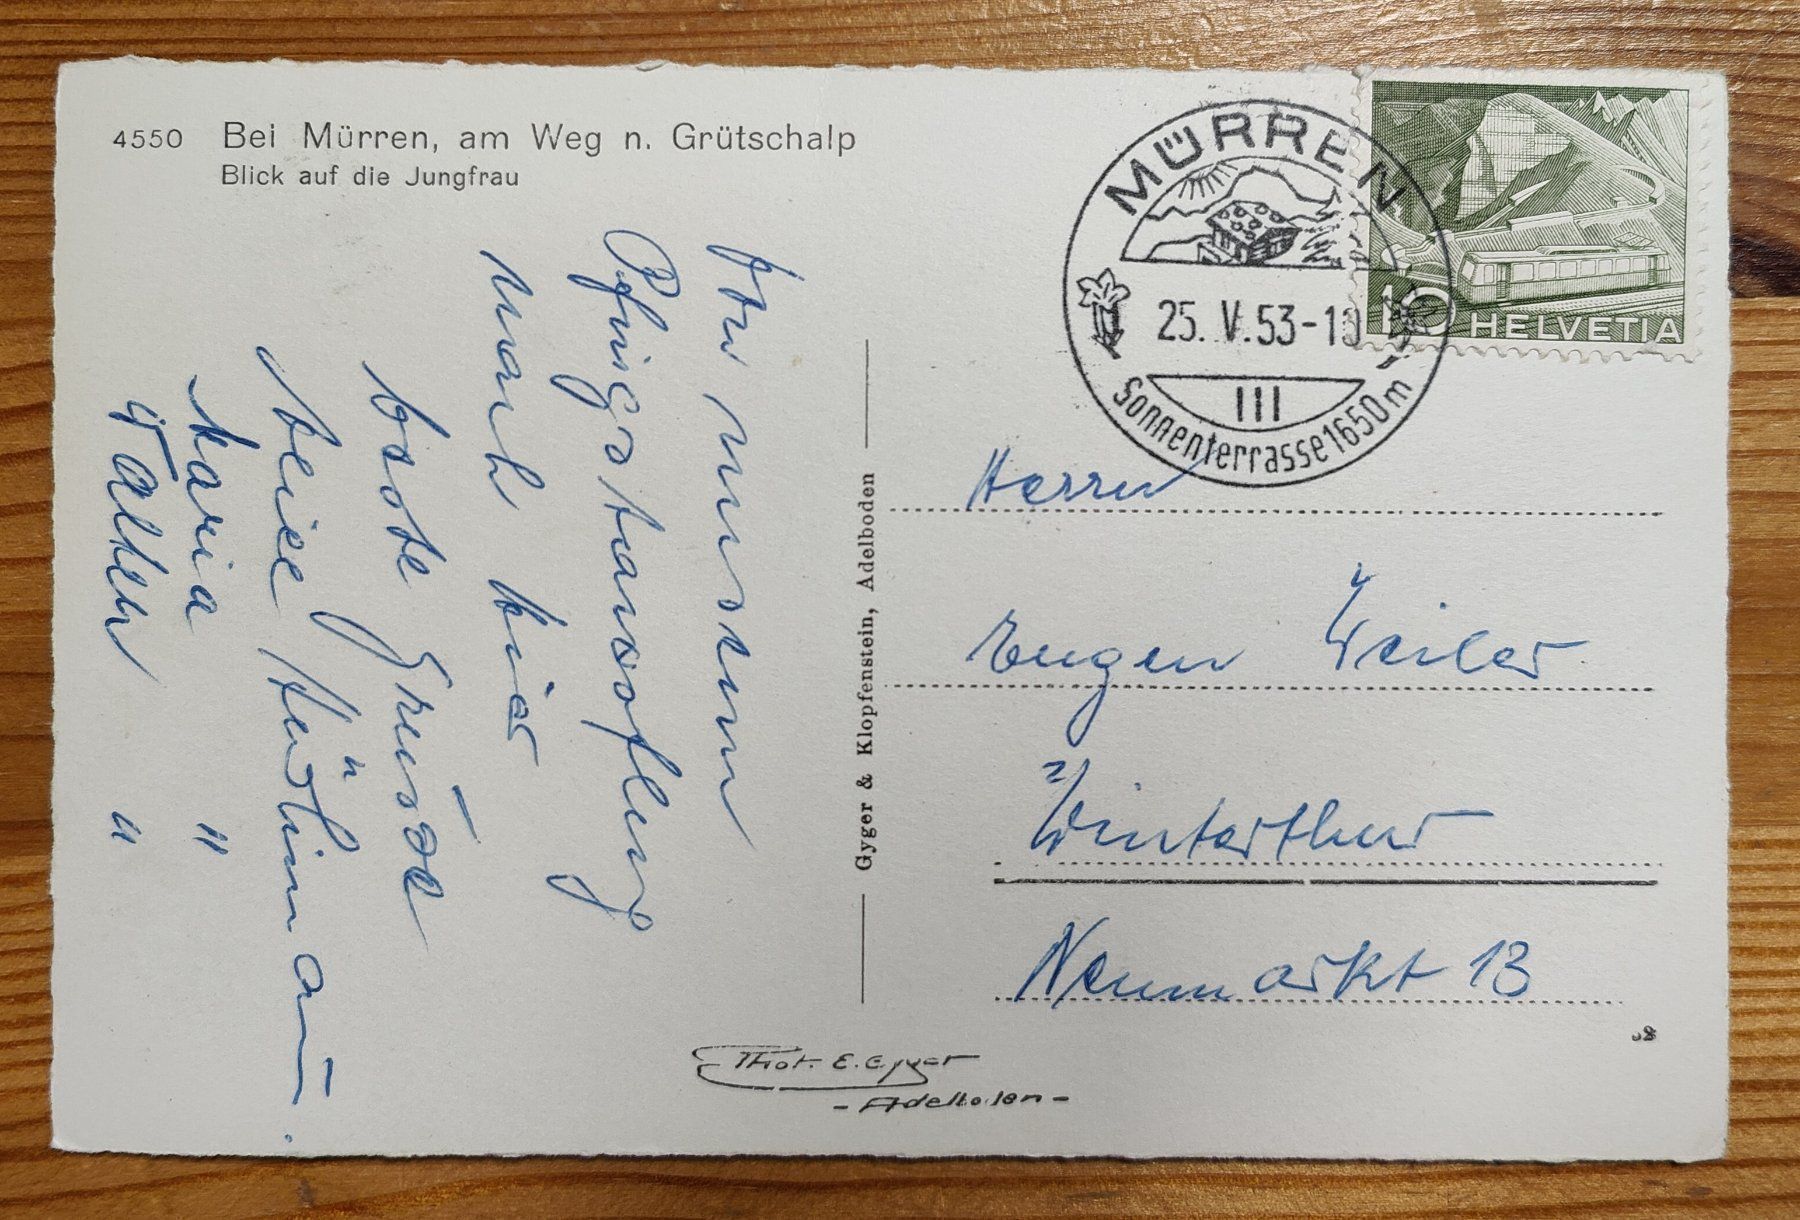 4550 Bei Mürren, am Weg n. Grütschalp
Blick auf die Jungfrau
MÜRREN
25. V. 53-10
III
Sonnenterrasse 1650 m
10 HELVETIA
Von unserm
Pfingstausflug
nach hier
beste Grüsse
Maria "
Walter "
Gyger & Klopfenstein, Adelboden
Herrn
Eugen Weiler
Winterthur
Neumarkt 13
Phot. E. Gyger
- Adelboden -